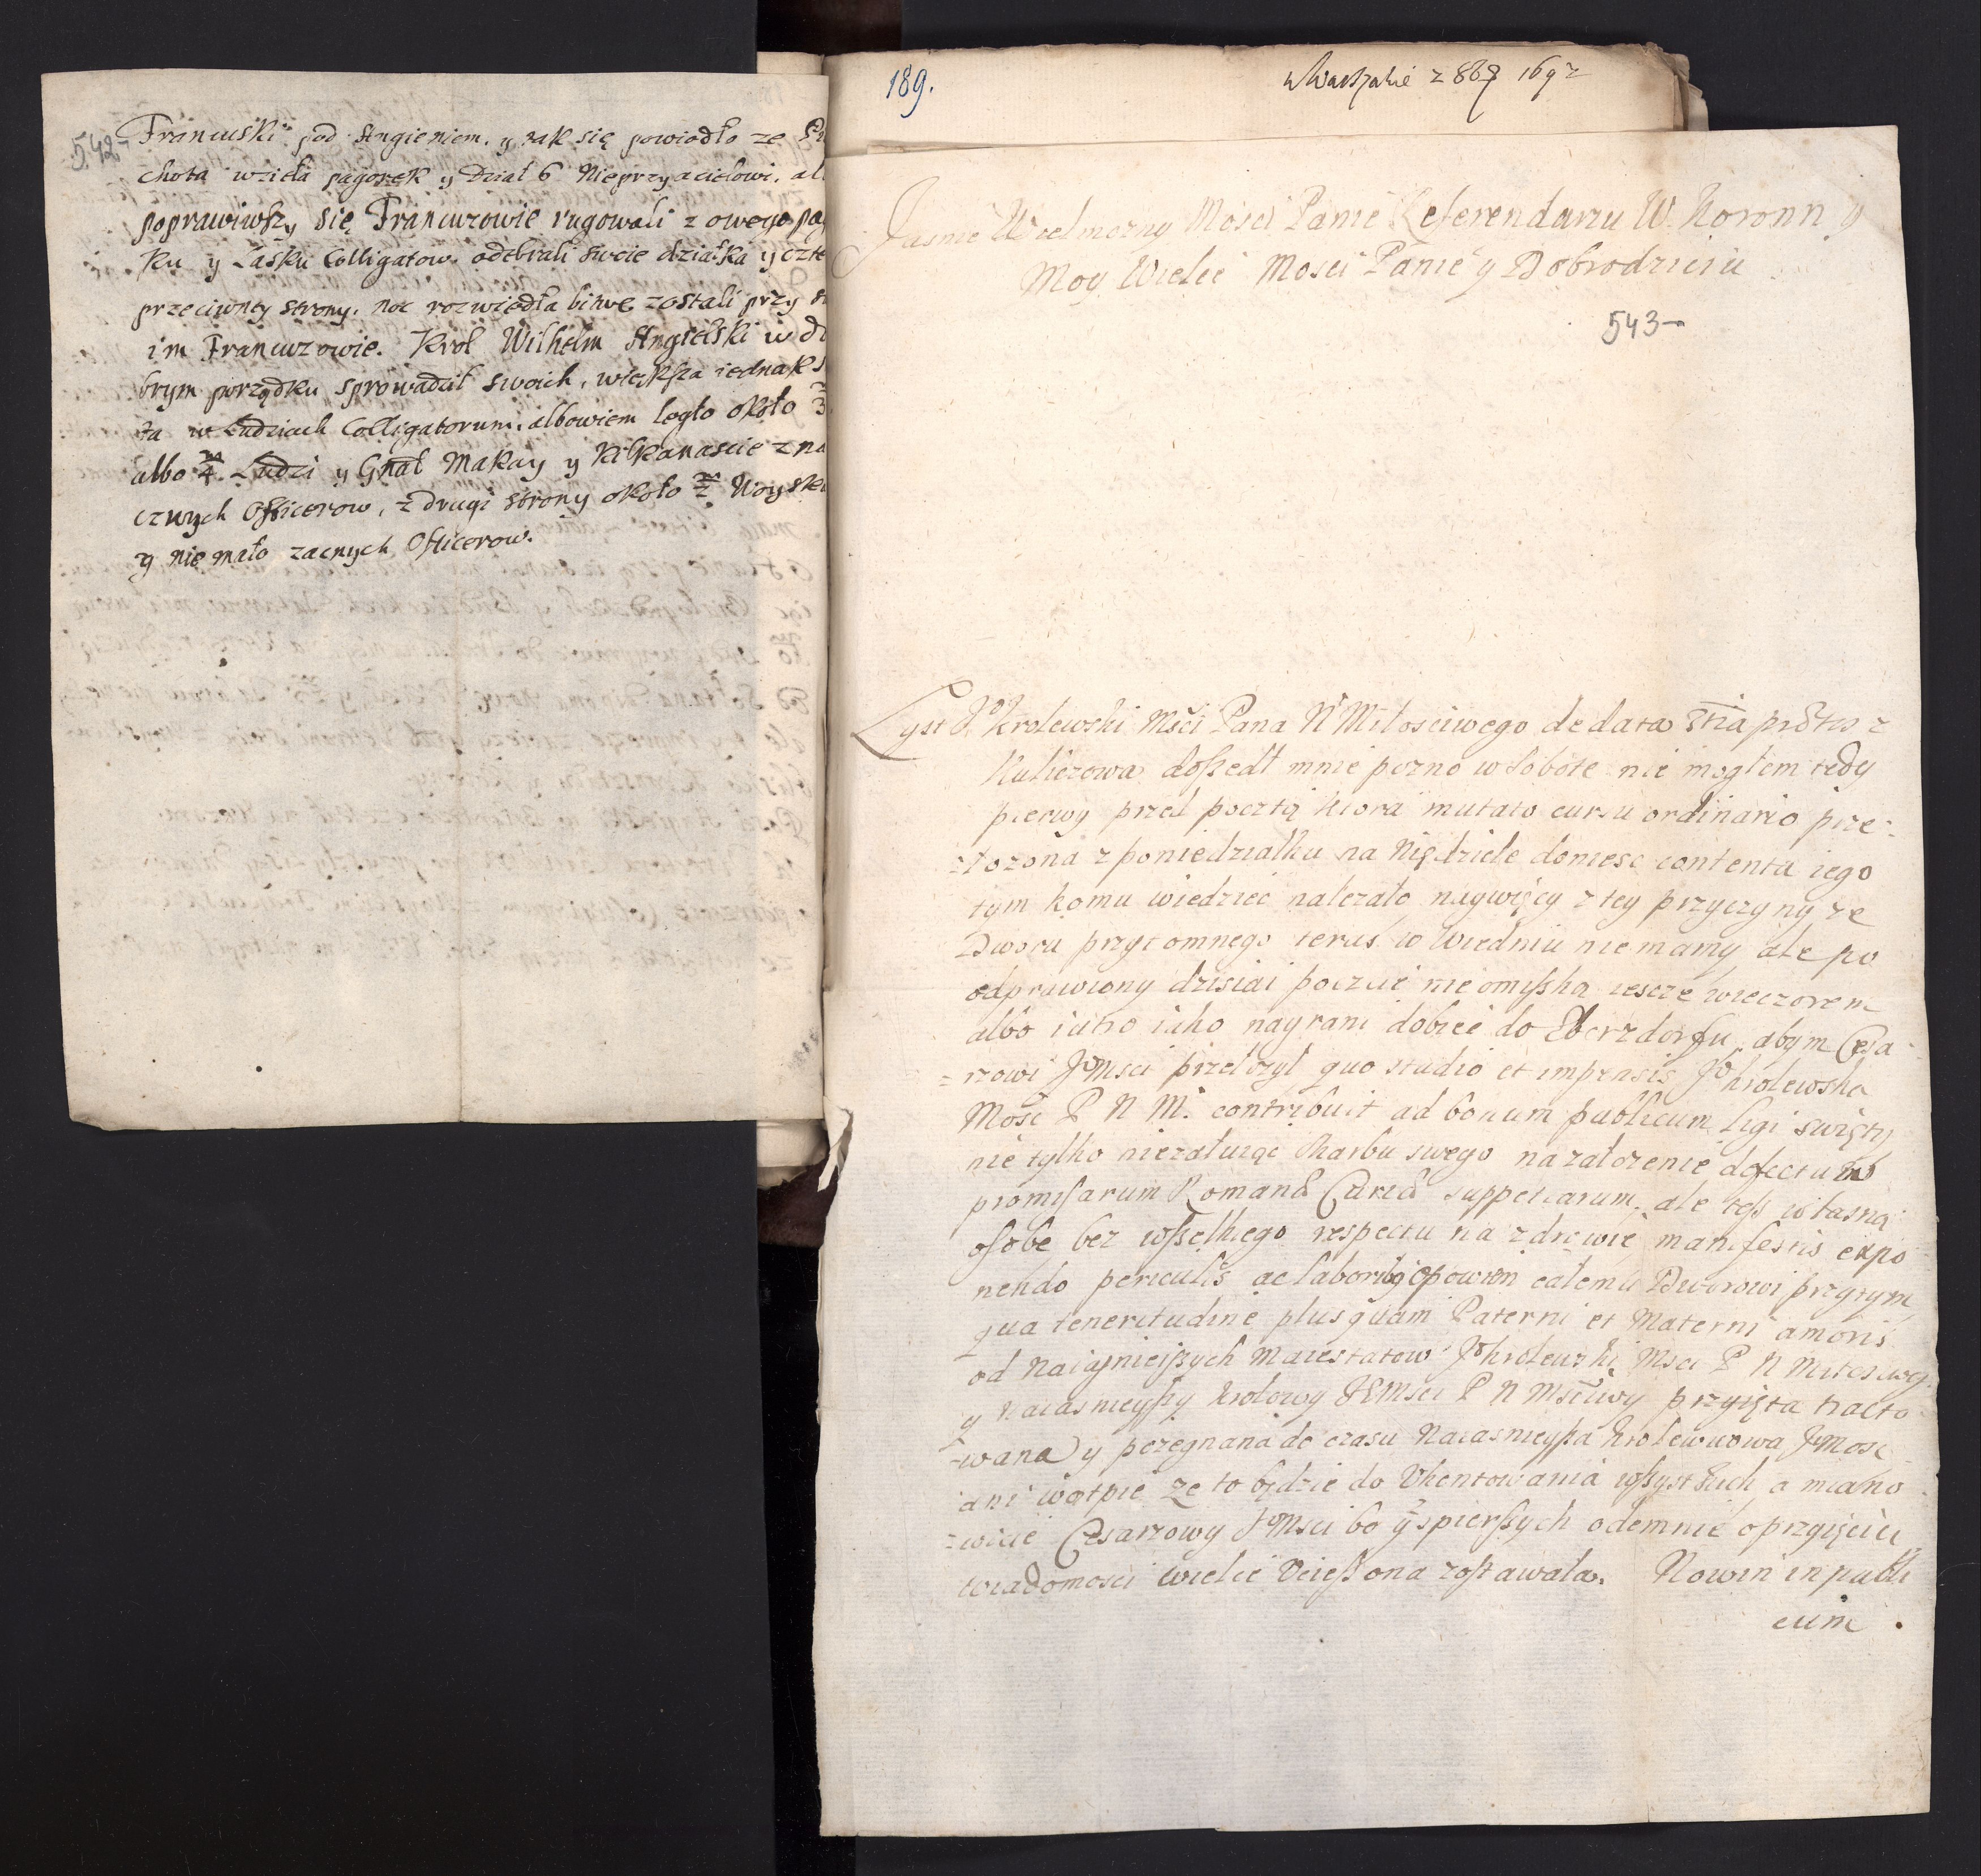 542
Francuski pod Angieniem. y tak się powiodło ze
chota wzieła pagorek y Dział 6 Nieprzyacielowi. al
poprawiwszy się Francuzowie rugowali z owego pa
ku y Lasku Colligatow. odebrali swoie działka y czte
przeciwney strony. noc rozwiedła bitwe zostali przy
im Francuzowie. Krol Wilhelm Angielski w d
brym porządku sprowadził swoich, większa iednak s
ta w Ludziach Colligatorum. albowiem legło około 3
albo 4 Ludzi y Gnał Makay y Kilkanascie zna
cznych Officerow, z drugi strony około 2 Woyska
y nie mało zacnych Officerow.
189.
w Warszawie z 8br 1692
Jasnie Wielmozny Mosci Panie Referendarzu W. Koronn y
Moy Wielce Mosci Panie y Dobrodzieiu
543
Lyst Jo Krolewski Msci Pana N Miłosciwego de data 5tia z
Kuliczowa doszedł mnie pozno w sobote nie mogłem tedy
pierwy przed pocztą ktora mutato cursu ordinario prze-
=łozona z poniedziałku na Niędziele doniesc contenta iego
tym komu wiedziec nalezało naywięcy z tey przyczyny ze
Dworu przytomnego teras w Wiedniu nie mamy ale po
odprawiony dzisiai poczcie nieomyszka iescze wieczorem
albo iutro iako nayrani dobiec do Eberzdorfu abym Cesa-
=rzowi JoMsci przełozył quo studio et impensis Jo Krolewska
Mosc P N M. contribuit ad bonum publicum ligi swięty
nie tylko niezałuiąc skarbu swego na załozenie defectum
promissarum Romanæ Curiæ suppetiarum. ale tesz własną
osobe bez wszelkiego respectu na zdrowie manifestis expo
nendo periculis ac laboribq opowiem całemu Dworowi przytym
qua teneritudine plusquam Paterni et Materni amoris
od Naiasnieiszych Maiestatow Jo Krolewski Msci P N Miłosciweg
y Naiasnieyszy Krolowy JeMsci P N Mscłiwy przyięta tracto
=wana y pozegnana do czasu Naiasnieysza Krolewnowa JeMosc
ani wątpie ze to będzie do Ukontowania wszystkich a miano
=wicie Cesarzowy JeMsci bo y spierszych odemnie o przyięciu
wiadomosci wielce Uciesz ona zostawała. Nowin in publi
cum.